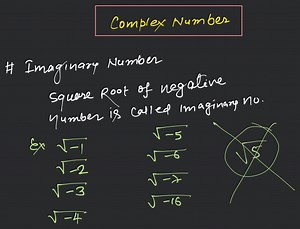 Complex Number
# Imaginary Number
Square Root of negative
number is called Imaginary no.
Ex √-1
√-2
√-3
√-4
√-5
√-6
√-7
√-16
√5